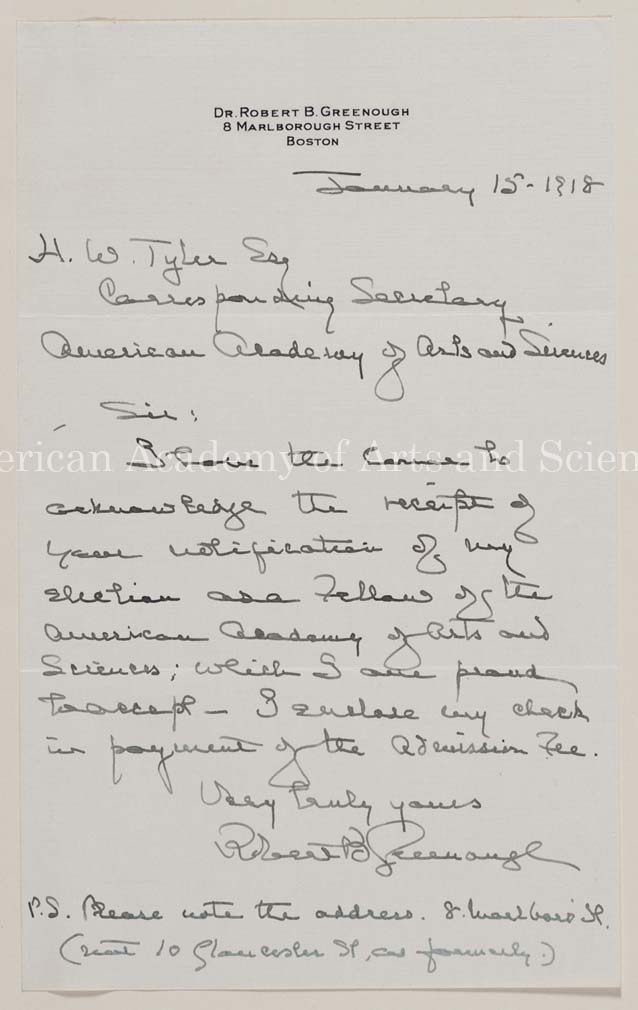 DR. ROBERT B. GREENOUGH
8 MARLBOROUGH STREET
BOSTON
January 15 - 1918
H. W. Tyler Esq
Corresponding Secretary
American Academy of Arts and Sciences
Sir:
I have the honor to
acknowledge the receipt of
your notification of my
election as a Fellow of the
American Academy of Arts and
Sciences; which I am proud
to accept - I enclose my check
in payment of the Admission Fee.
Very truly yours
Robert B Greenough
P.S. Please note the address. 8. Marlboro' St.
(not 10 Gloucester St, as formerly.)
merican Academy of Arts and Scien